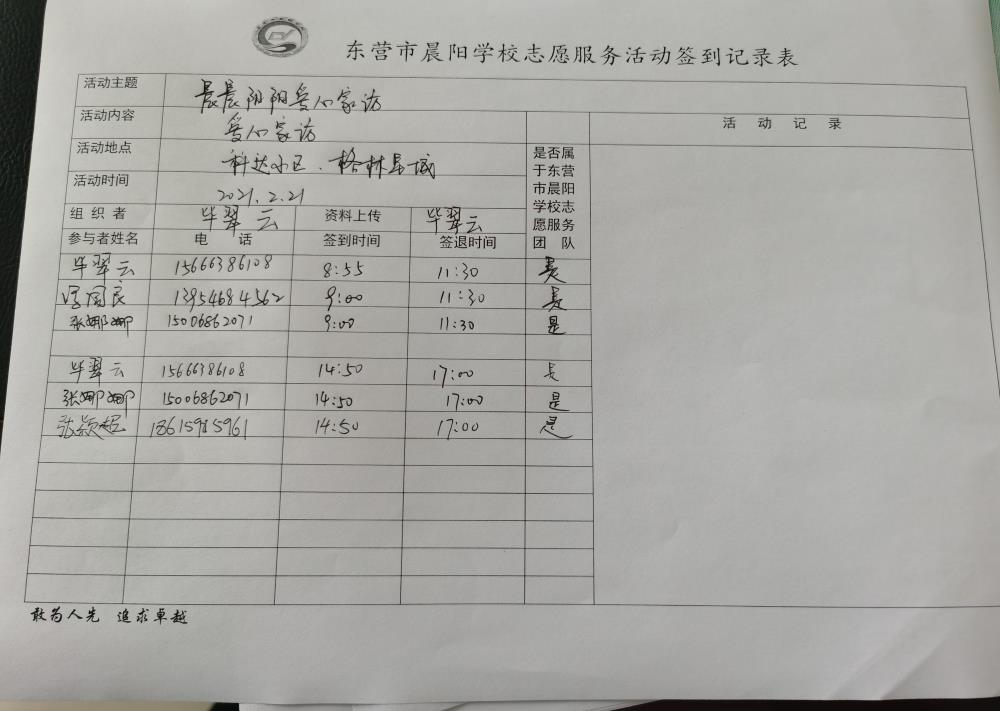 东营市晨阳学校志愿服务活动签到记录表
活动主题 晨晨阳阳爱心家访
活动内容 爱心家访
活动地点 科达小区、格林星城
活动时间 2021.2.21
组织者 毕翠云 资料上传 毕翠云
参与者姓名 电话 签到时间 签退时间 是否属于东营市晨阳学校志愿服务团队
活动记录
毕翠云 15666386108 8:55 11:30 是
国良 13954684562 9:00 11:30 是
张娜娜 15006862071 9:00 11:30 是
毕翠云 15666386108 14:50 17:00 是
张娜娜 15006862071 14:50 17:00 是
张颖超 18615985961 14:50 17:00 是
敢为人先 追求卓越